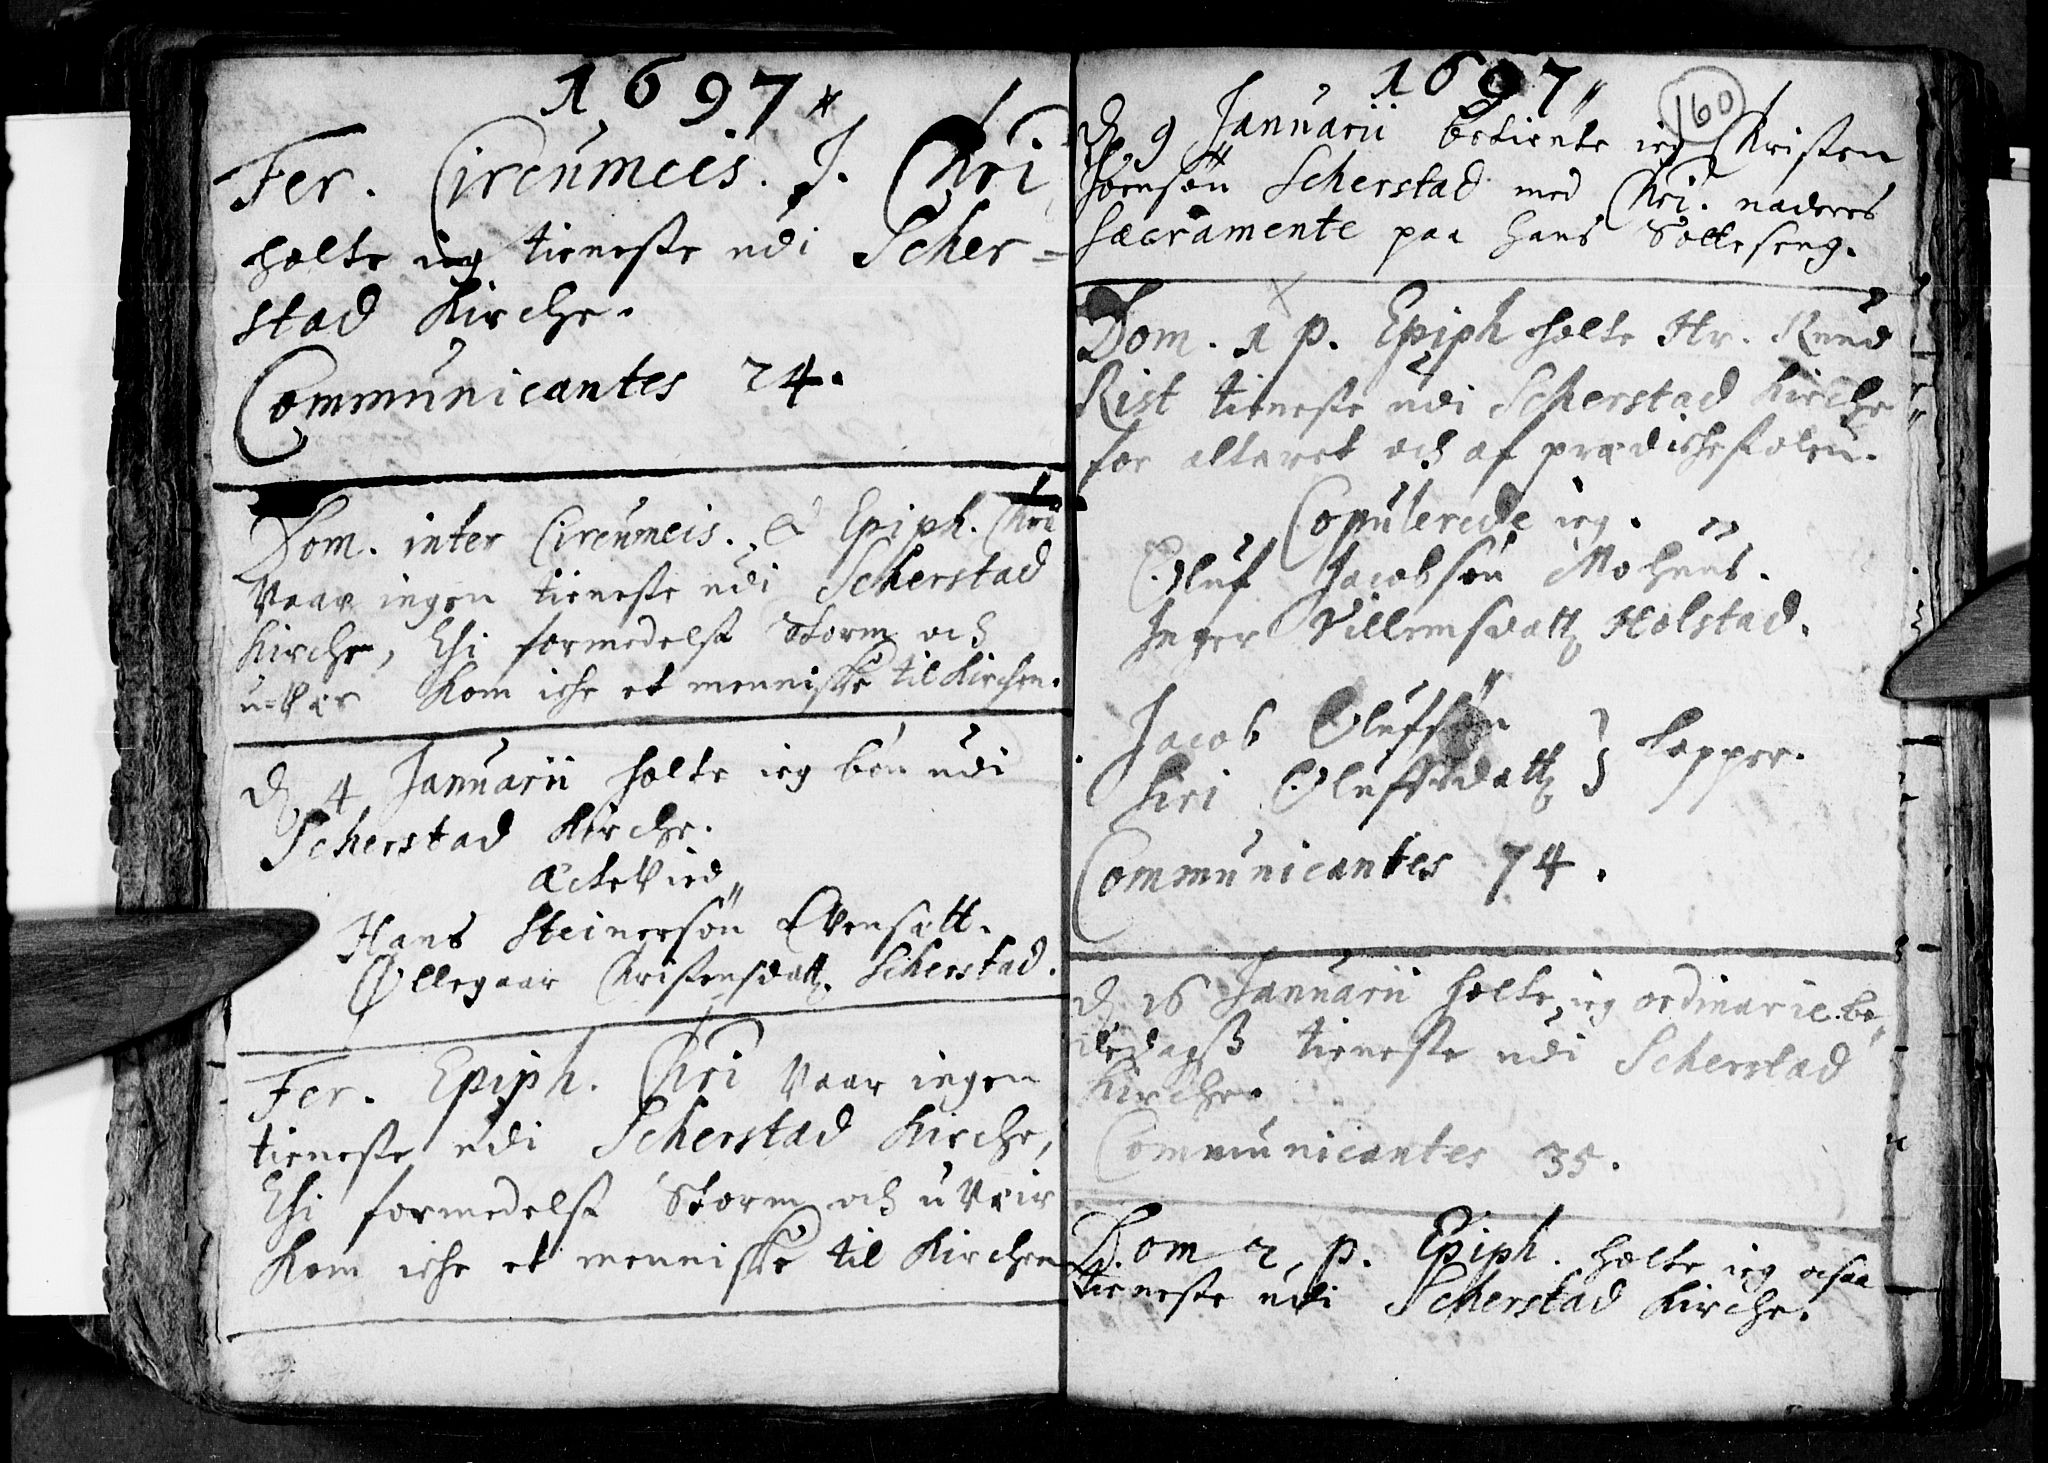 1697
Fer. Circumcis. J. Chri
holte ieg tieneste udi Scher=
stad Kirche.
Communicantes 24.
Dom. inter Circumcis. & Epiph. Chri
Vaar ingen tieneste udi Scherstad
Kirche, thi formedelst storm och
u-Vær kom iche et menniske til Kirchen.
d. 4 Januarii holte ieg bön udi
Scherstad Kirche.
ActeVied
Hans Steinersön Evensætt.
Øllegaar Christensdatt. Scherstad.
Fer. Epiph. Chri Vaar ingen
tieneste udi Scherstad Kirche,
thi formedelst storm och uVeir
kom iche et menniske til Kirchen
1697
160
d. 9 Januarii betiente ieg Christen
Joensön Scherstad med Chri. naderes
sacramente paa hans Sotteseng.
Dom. 1 p. Epiph holte Hr. Knud
Rist tieneste udi Scherstad Kirche
for alteret och af prædichestolen.
Copulerede ieg.
Oluf Jacobsön Mohuus.
Inger Villumsdatt Holstad.
Jacob Olufsön
Siri Olufsdatt } Lapper.
Communicantes 74.
d. 16 Januarii holte ieg ordinarie be=
dedagss tieneste udi Scherstad
Kirche.
Communicantes 35.
Dom 2. p. Epiph. holte ieg ochsaa
tieneste udi Scherstad Kirche.